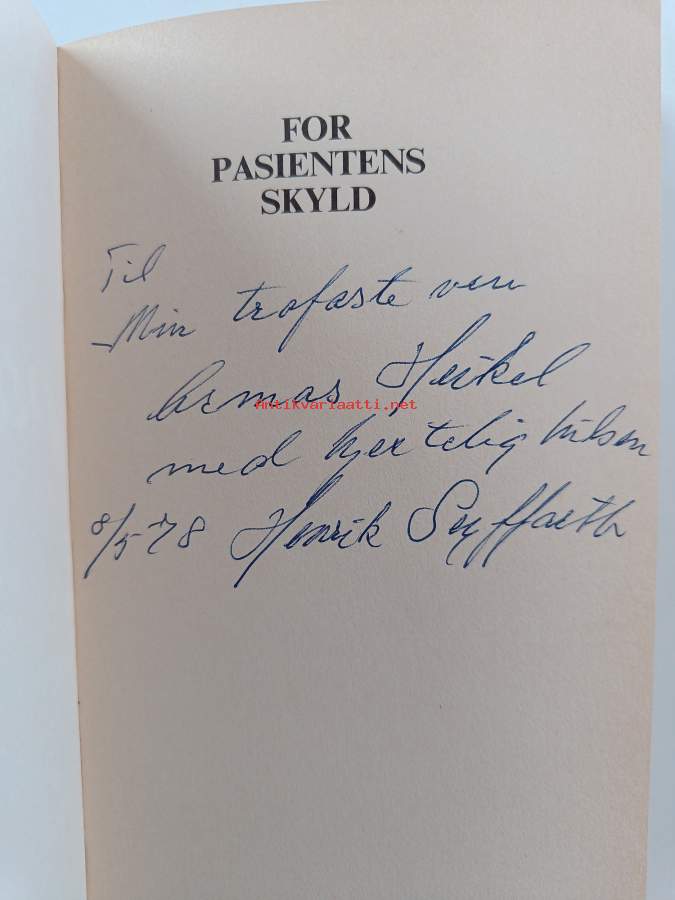 FOR
PASIENTENS
SKYLD
Til
Min trofaste venn
Armas Heikel
antikvariaatti.net
med hjertelig hilsen
8/5-78 Henrik Seyffarth